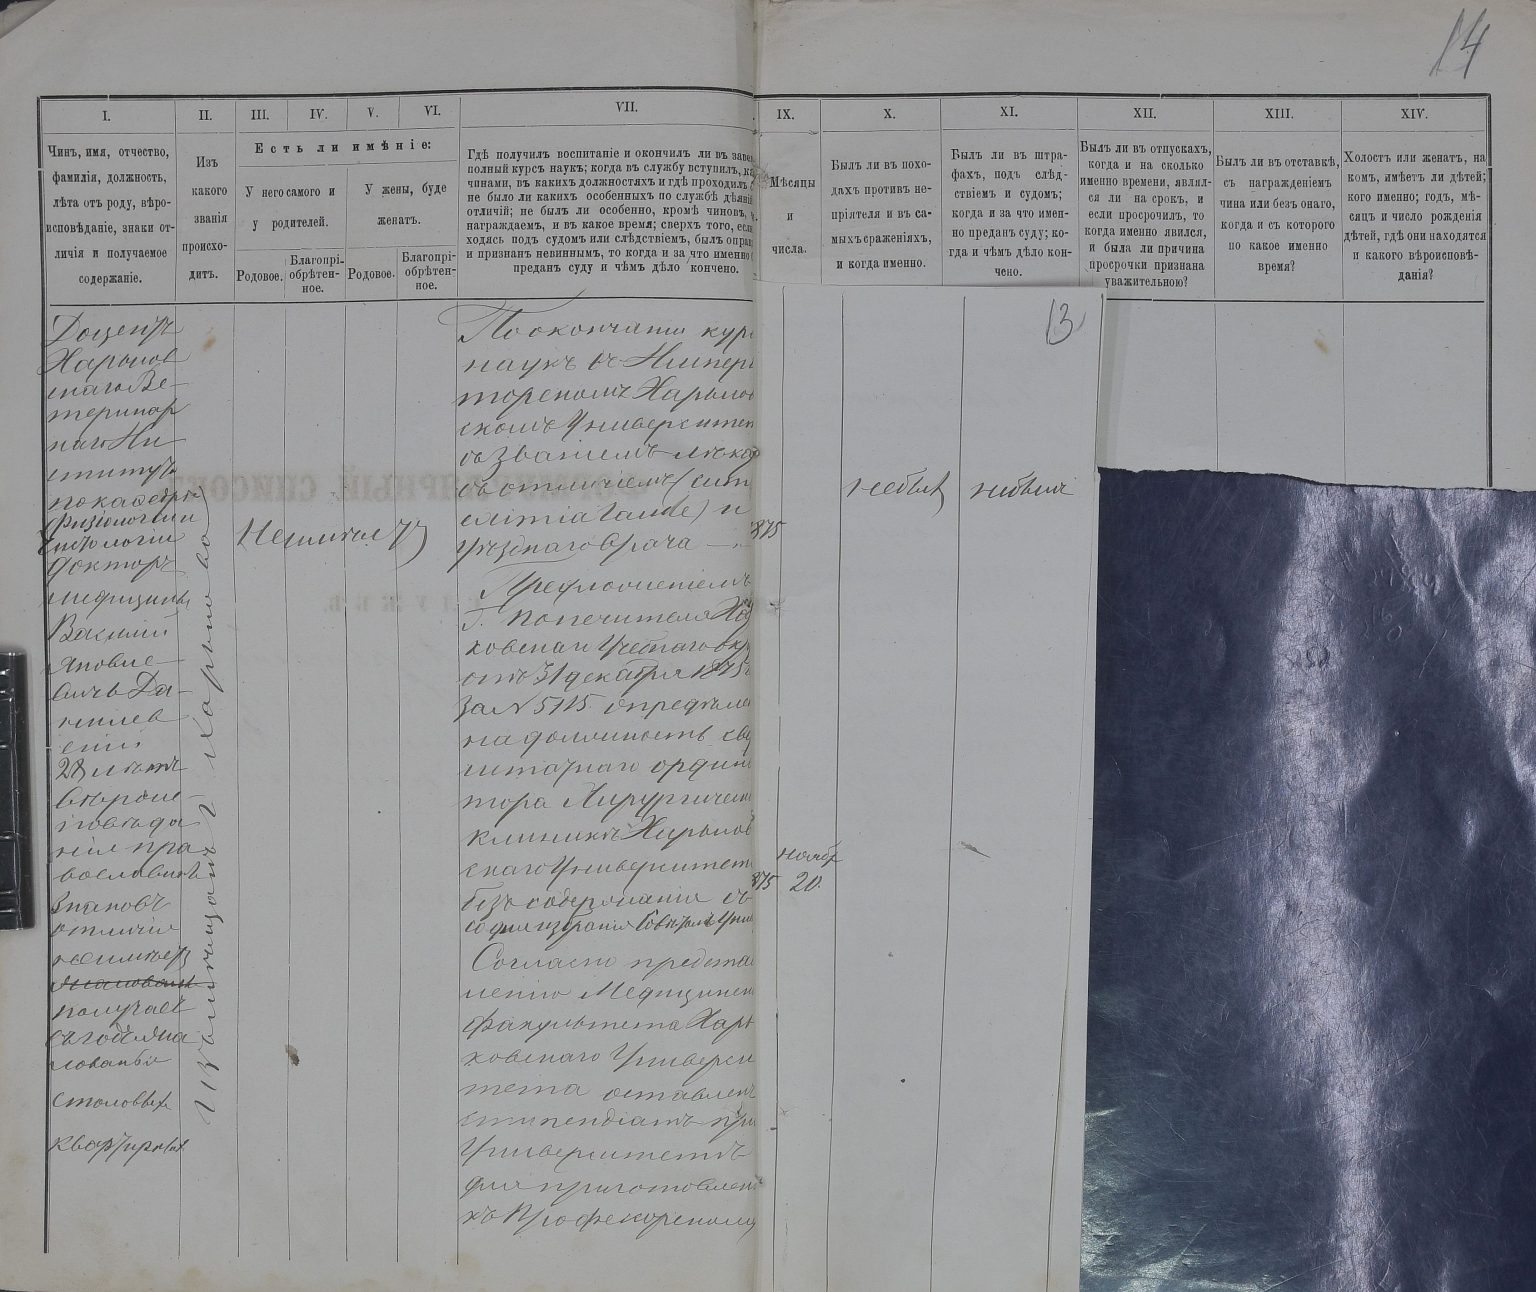 14
I.
II.
III.
IV.
V.
VI.
VII.
IX.
X.
XI.
XII.
XIII.
XIV.
Чинъ, имя, отчество,
фамилія, должность,
лѣта отъ роду, вѣро-
исповѣданіе, знаки от-
личія и получаемое
содержаніе.
Изъ
какого
званія
происхо-
дитъ.
Есть ли имѣніе:
У него самого и
у родителей.
У жены, буде
женатъ.
Родовое.
Благопрі-
обрѣтен-
ное.
Родовое.
Благопрі-
обрѣтен-
ное.
Гдѣ получилъ воспитаніе и окончилъ ли въ заве
полный курсъ наукъ; когда въ службу вступилъ, ка
чинами, въ какихъ должностяхъ и гдѣ проходилъ
не было ли какихъ особенныхъ по службѣ дѣяні
отличій; не былъ ли особенно, кромѣ чиновъ,
награждаемъ, и въ какое время; сверхъ того, если
ходясь подъ судомъ или слѣдствіемъ, былъ оправ
и признанъ невиннымъ, то когда и за что именно
преданъ суду и чѣмъ дѣло кончено.
Мѣсяцы
и
числа.
Былъ ли въ похо-
дахъ противъ не-
пріятеля и въ са-
мыхъ сраженіяхъ,
и когда именно.
Былъ ли въ штра-
фахъ, подъ слѣд-
ствіемъ и судомъ;
когда и за что имен-
но преданъ суду; ко-
гда и чѣмъ дѣло кон-
чено.
Былъ ли въ отпускахъ,
когда и на сколько
именно времени, являл-
ся ли на срокъ, и
если просрочилъ, то
когда именно явился,
и была ли причина
просрочки признана
уважительною?
Былъ ли въ отставкѣ,
съ награжденіемъ
чина или безъ онаго,
когда и съ котораго
по какое именно
время?
Холостъ или женатъ, на
комъ, имѣетъ ли дѣтей;
кого именно; годъ, мѣ-
сяцъ и число рожденія
дѣтей, гдѣ они находятся
и какого вѣроисповѣ-
данія?
13
Доцентъ
Харьков
скаго Ве-
теринар
наго Ин
ститута
по кафедрѣ
физіологіи и
гистологіи
Докторъ
медицины
Василій
Яковле-
вичъ Да-
нилев
скій
28 лѣтъ
вѣроис-
повѣда
нія пра
вославнаго
Знаковъ
отличія
не имѣетъ
получаетъ
въ годъ жа
лованья
столовыхъ
квартирныхъ
Не имѣетъ
По окончаніи кур
наукъ въ Импер
торскомъ Харьков
скомъ Университе
съ званіемъ лѣка
съ отличіемъ (
laude) и
уѣзднаго врача
Предложеніемъ
Г. Попечителя Ха
ковскаго Учебнаго окр
отъ 31 декабря 1875
за № 5115 опредѣле
на должность све
штатнаго орди
тора Хирургическ
клиники Харьков
скаго Университет
безъ содержанія съ
со дня избранія Совѣтомъ Унив
Согласно предста
ленію Медицинск
факультета Харь
ковскаго Универси
тета оставленъ
стипендіатъ при
Университетѣ
для приготовлен
къ Профессорскому
875
нояб
875 20.
не былъ
не былъ